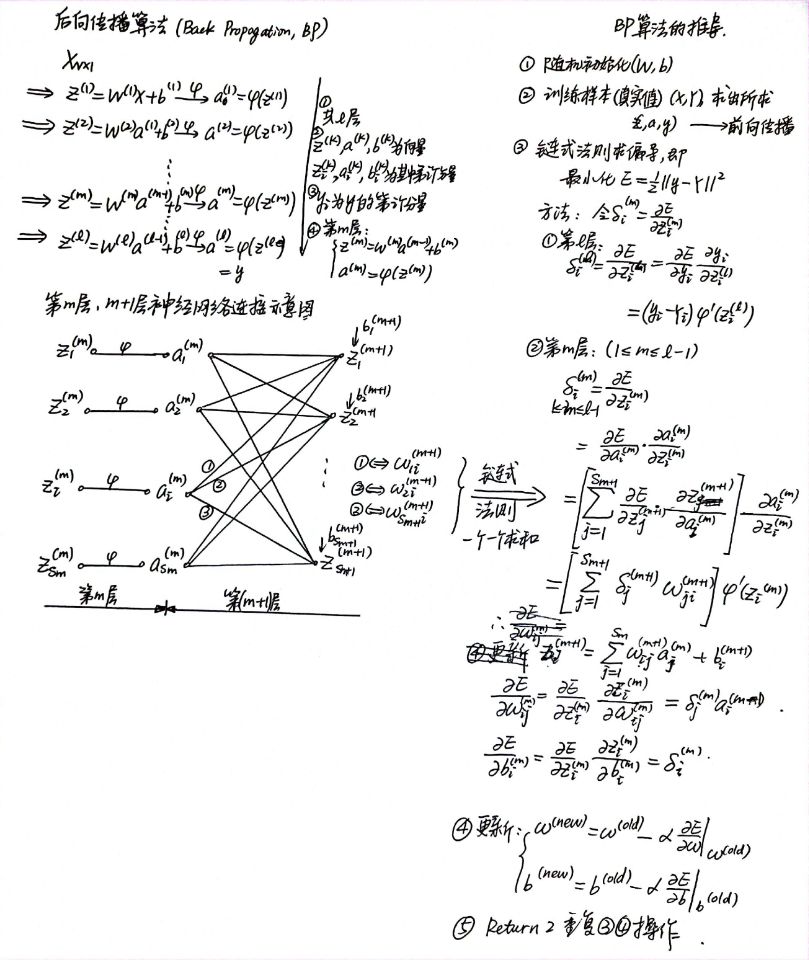 后向传播算法 (Back Propagation, BP)
X_{N×1}
⇒ z^{(1)}=W^{(1)}X+b^{(1)} →^φ a^{(1)}=φ(z^{(1)})
⇒ z^{(2)}=W^{(2)}a^{(1)}+b^{(2)} →^φ a^{(2)}=φ(z^{(2)})
⋮
⇒ z^{(m)}=W^{(m)}a^{(m-1)}+b^{(m)} →^φ a^{(m)}=φ(z^{(m)})
⋮
⇒ z^{(l)}=W^{(l)}a^{(l-1)}+b^{(l)} →^φ a^{(l)}=φ(z^{(l)})
=y
①
共l层
②
z^{(k)},a^{(k)},b^{(k)}为向量
z_i^{(k)},a_i^{(k)},b_i^{(k)}为其第i分量
③
y_i为y的第i分量
④第m层:
{z^{(m)}=w^{(m)}a^{(m-1)}+b^{(m)}
a^{(m)}=φ(z^{(m)})
第m层、m+1层神经网络连接示意图
z_1^{(m)} φ a_1^{(m)}
z_2^{(m)} φ a_2^{(m)}
z_i^{(m)} φ a_i^{(m)}
z_{Sm}^{(m)} φ a_{Sm}^{(m)}
① ② ③
b_1^{(m+1)}
z_1^{(m+1)}
b_2^{(m+1)}
z_2^{(m+1
⋮
b_{Sm+1}^{(m+1)}
z_{Sm+1}^{(m+1)}
第m层 第(m+1)层
①⇔ω_{1i}^{(m+1)}
③⇔ω_{2i}^{(m+1)}
②⇔ω_{Sm+1i}^{(m+1)}
链式
法则
一个一个求和
BP算法的推导.
① 随机初始化(W,b)
② 训练样本(真实值) (X,Y), 求出所求
z,a,y) → 前向传播
③ 链式法则求偏导,即
最小化 E=½||y-Y||²
方法: 令δ_i^{(m)}=∂E/∂z_i^{(m)}
①第l层:
=∂E/∂y_i ∂y_i/∂z_i^{(l)}
=(y_i-Y_i)φ'(z_i^{(l)})
②第m层: (1≤m≤l-1)
δ_i^{(m)}=∂E/∂z_i^{(m)}
1≤m≤l-1
=∂E/∂a_i^{(m)}·∂a_i^{(m)}/∂z_i^{(m)}
∂a_i^{(m)}/∂z_i^{(m)}
=[∑_{j=1}^{Sm+1} δ_j^{(m+1)} ω_{ji}^{(m+1)}]φ'(z_i^{(m)})
=∑_{j=1}^{Sm} ω_{ij}^{(m+1)}a_j^{(m)}+b_i^{(m+1)}
∂E/∂ω_{ij}^{(m)}=∂E/∂z_i^{(m)} ∂z_i^{(m)}/∂ω_{ij}^{(m)}=δ_j^{(m)}a_i
∂E/∂b_i^{(m)}=∂E/∂z_i^{(m)} ∂z_i^{(m)}/∂b_i^{(m)}=δ_i^{(m)}.
④ 更新: {ω^{(new)}=ω^{(old)}-α ∂E/∂ω|_{ω(old)}
b^{(new)}=b^{(old)}-α ∂E/∂b|_{b(old)}
⑤ Return 2 重复③④操作.